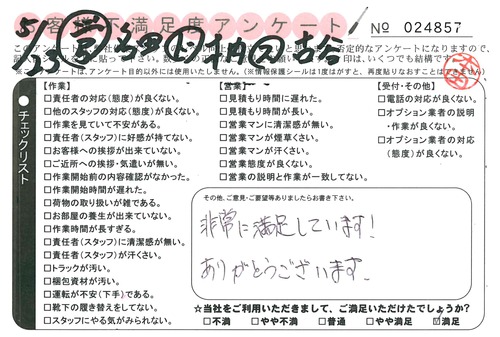 お客様不満足度アンケート
No 024857
5/23
チェックリスト
【作業】
□責任者の対応(態度)が良くない。
□他のスタッフの対応(態度)が良くない。
□作業を見ていて不安がある。
□責任者(スタッフ)に好感が持てない。
□お客様への挨拶が出来ていない。
□ご近所への挨拶・気遣いが無い。
□作業開始前の内容確認がなかった。
□作業開始時間が遅れた。
□荷物の取り扱いが雑である。
□お部屋の養生が出来ていない。
□作業時間が長すぎる。
□責任者(スタッフ)に清潔感が無い。
□責任者(スタッフ)が汗くさい。
□トラックが汚い。
□梱包資材が汚い。
□運転が不安(下手)である。
□靴下の履き替えをしてない。
□スタッフにやる気がみられない。
【営業】
□見積もり時間に遅れた。
□見積もり時間が長い。
□営業マンに清潔感が無い。
□営業マンが汗くさい。
□営業態度が良くない。
□営業の説明と作業が一致してない。
【受付・その他】
□電話の対応が良くない。
□オプション業者の説明・作業が良くない。
□オプション業者の対応(態度)が良くない。
その他、ご意見・ご要望等ありましたらお書き下さい。
非常に満足しています!
ありがとうございます。
☆当社をご利用いただきまして、ご満足いただけたでしょうか?
□不満 □やや不満 □普通 □やや満足 ☑満足